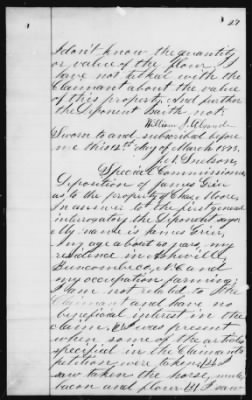 27
I don't know the quantity
or value of the flour. I
have not talked with the
Claimant about the value
of this property. And further
the Deponent saith not.
William J. 
Sworn to and subscribed before
me this 12th day of March 1873.
Special Commissioner
Deposition of James Grier
as to the property of
In answer to the first general
interrogatory the Deponent says
My name is James Grier,
my age about 50 years, my
residence in Asheville,
Buncombe Co, N.C. and
my occupation farming;
I am not related to the
Claimant and have no
beneficial interest in the
claim. I was present
when some of the articles
specified in the Claimants
petition were taken. I
saw taken the horse, mule
bacon and flour. I saw